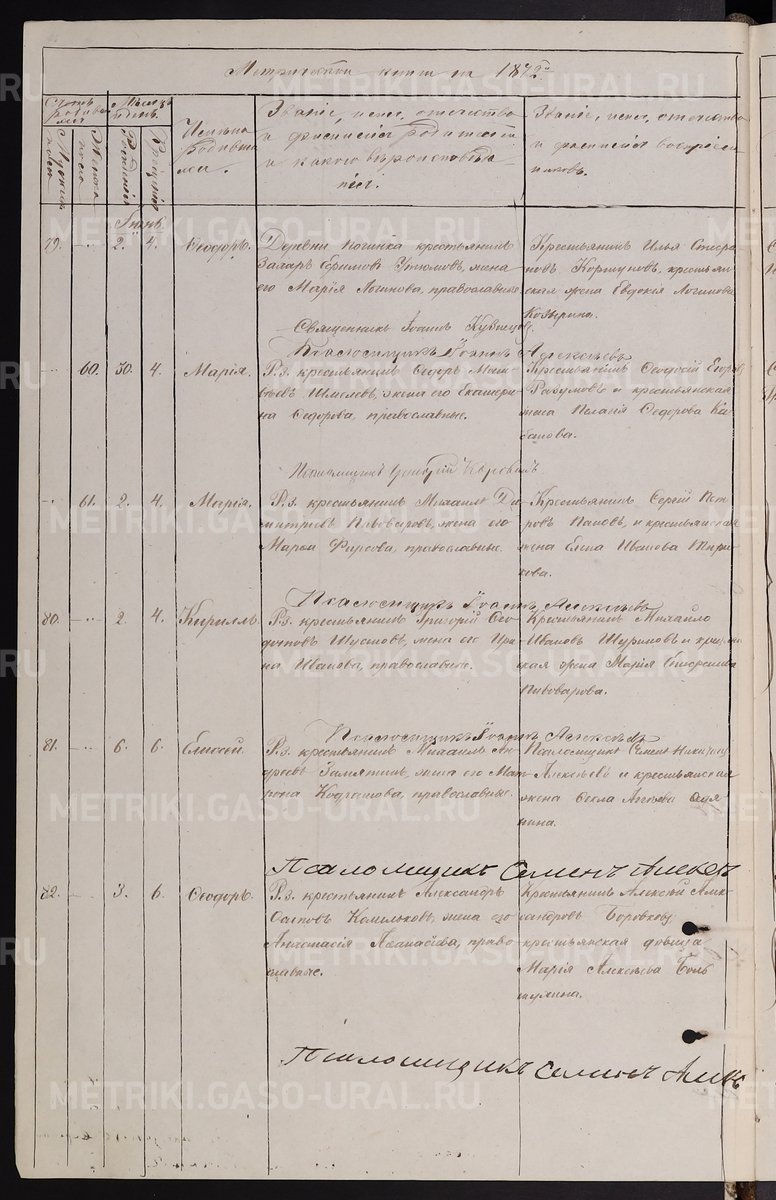 Метрической книги на 1872 г.
Счетъ родившихся
Мужеска
Женска
Мѣсяцъ и день
Рожденія
Крещенія
Имена родившихся.
Званіе, имя, отчество
и фамилія родителей
и какого вѣроисповѣда
нія.
Званіе, имя, отчество
и фамилія воспріем
никовъ.
Іюнь
79. 2. 4. Ѳеодоръ.
Деревни Логинка крестьянинъ
Захаръ Ефимовъ, жена
его Марія Логинова, православные.
Крестьянинъ Илья
Коршуновъ, крестьян
ская жена Евдокія Логинова
Священникъ Іоаннъ Кузнецовъ
Псаломщикъ Іоаннъ Алексѣевъ
60. 30. 4. Марія.
Р.з. крестьянинъ Ѳедоръ
Шмелевъ, жена его Екатери
на Ѳедорова, православные.
Крестьянинъ Ѳеодосій Егоровъ
Разумовъ и крестьянская
жена Пелагія Ѳедорова Ка
банова.
Псаломщикъ
61. 2. 4. Марія.
Р.з. крестьянинъ Михаилъ Ди
митріевъ Пивоваровъ, жена его
Марѳа Фирсова, православные.
Крестьянинъ Сергій Пет
ровъ Пановъ, и крестьянская
жена Елена Иванова
Псаломщикъ Іоаннъ Алексѣевъ
80. 2. 4. Кириллъ.
Р.з. крестьянинъ Григорій Ѳео
Шустовъ, жена его Ири
на Иванова, православные.
Крестьянинъ Михайло
Ивановъ и крестьян
ская жена Марія
Пивоварова.
Псаломщикъ Іоаннъ Алексѣевъ
81. 6. 6. Елисей.
Р.з. крестьянинъ Михаилъ Ан
дреевъ Замятинъ, жена его Мат
рона Кодратова, православные.
Псаломщикъ Семенъ
Алексѣевъ и крестьянская
жена Ѳекла Агѣева
нина.
Псаломщикъ Семенъ Алексѣ
82. 3. 6. Ѳеодоръ.
Р.з. крестьянинъ Александръ
Осиповъ Комельковъ, жена его
Анастасія Аѳанасіева, право
славные.
Крестьянинъ Алексѣй Алек
сандровъ Боровковъ
крестьянская дѣвица
Марія Алексѣева Боль
шухина.
Псаломщикъ Семенъ Алек
METRIKI.GASO-URAL.RU